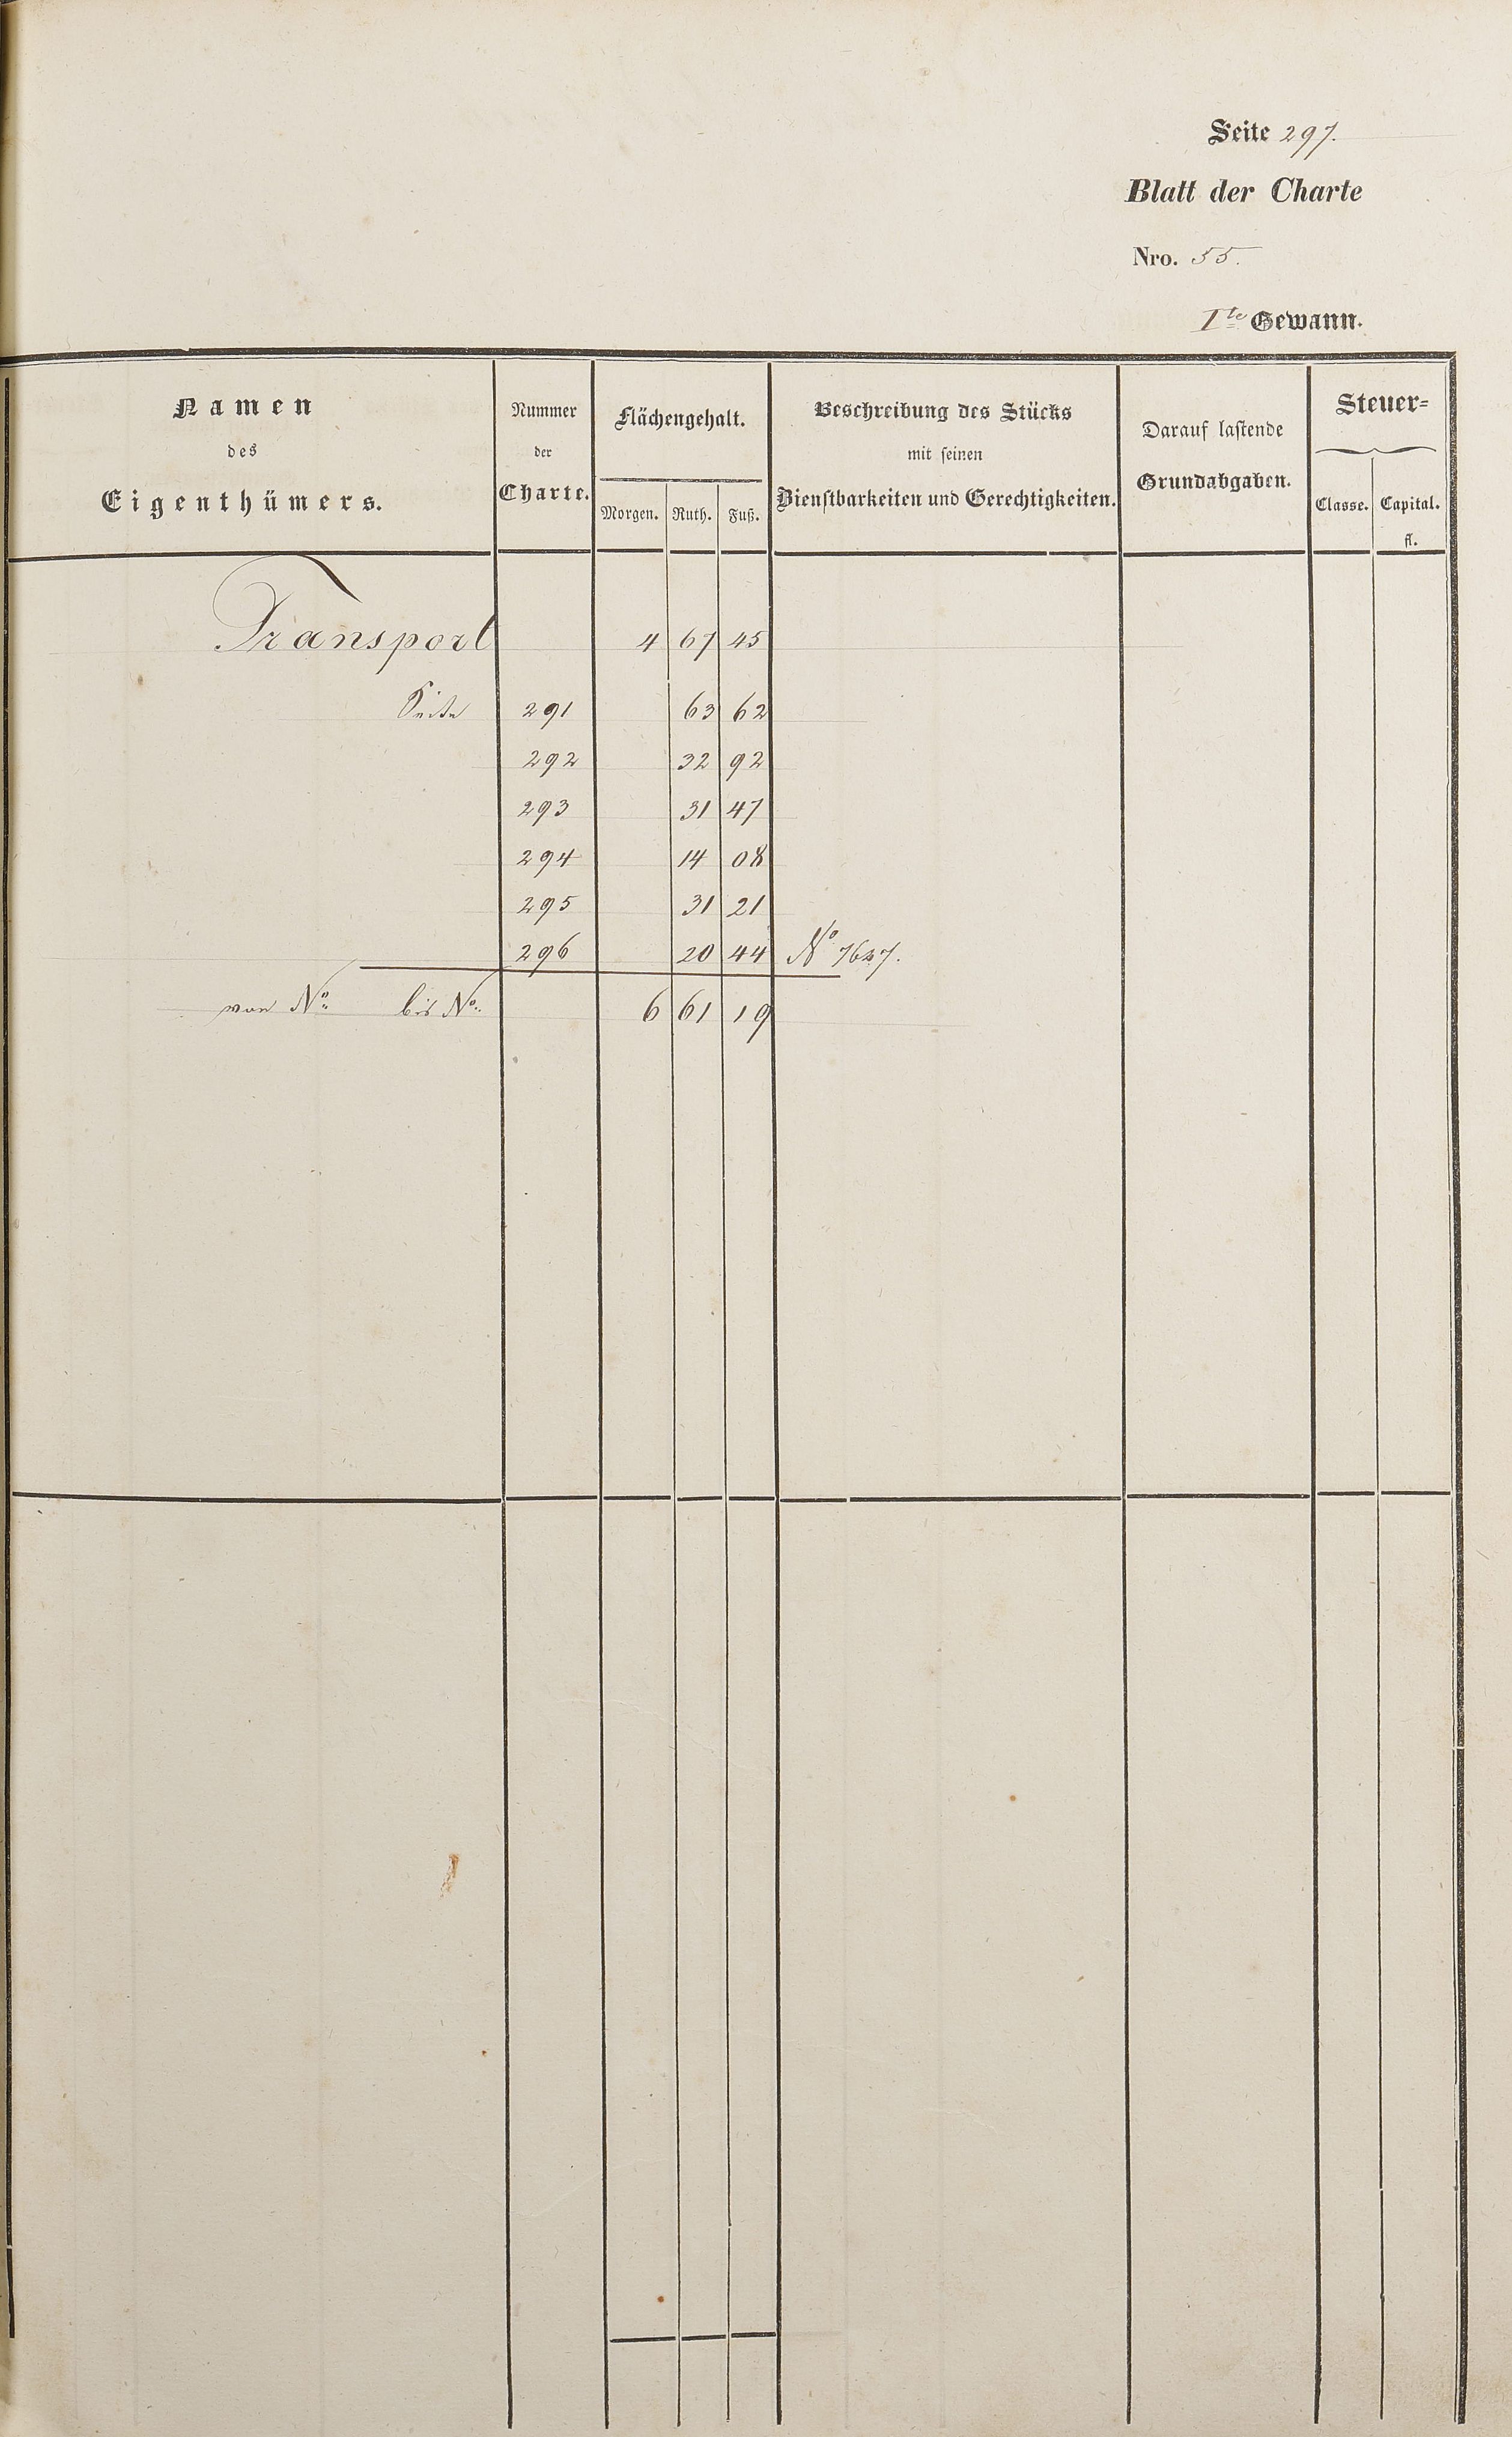 Seite 297.
Blatt der Charte
Nro. 55.
Ite Gewann.
Namen des Eigenthümers.
Nummer der Charte.
Flächengehalt.
Morgen. Ruth. Fuß.
Beschreibung des Stücks
mit seinen
Dienstbarkeiten und Gerechtigkeiten.
Darauf lastende
Grundabgaben.
Steuer=
Classe. Capital.
fl.
Transport 4 67 45
Seite 291 63 62
292 32 92
293 31 47
294 14 08
295 31 21
296 20 44 No 7627.
von No bis No 6 61 19